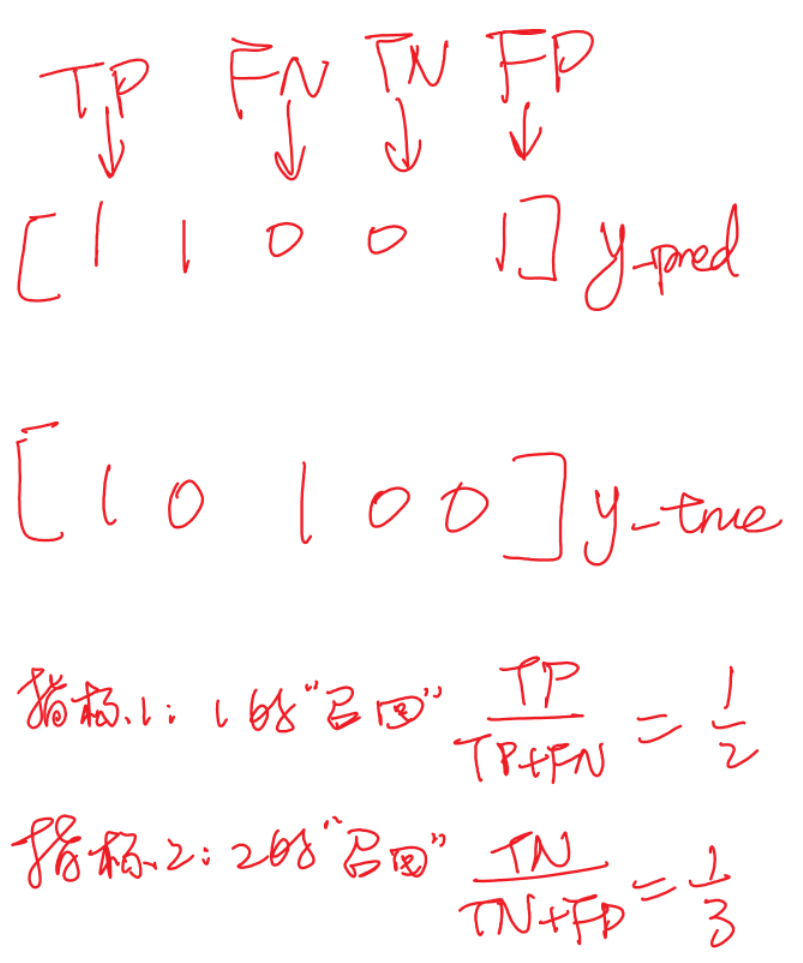 TP FN TN FP
[1 1 0 0 1] y_pred
[1 0 1 0 0] y_true
指标1: 1的“召回” TP/(TP+FN) = 1/2
指标2: 2的“召回” TN/(TN+FP) = 1/3